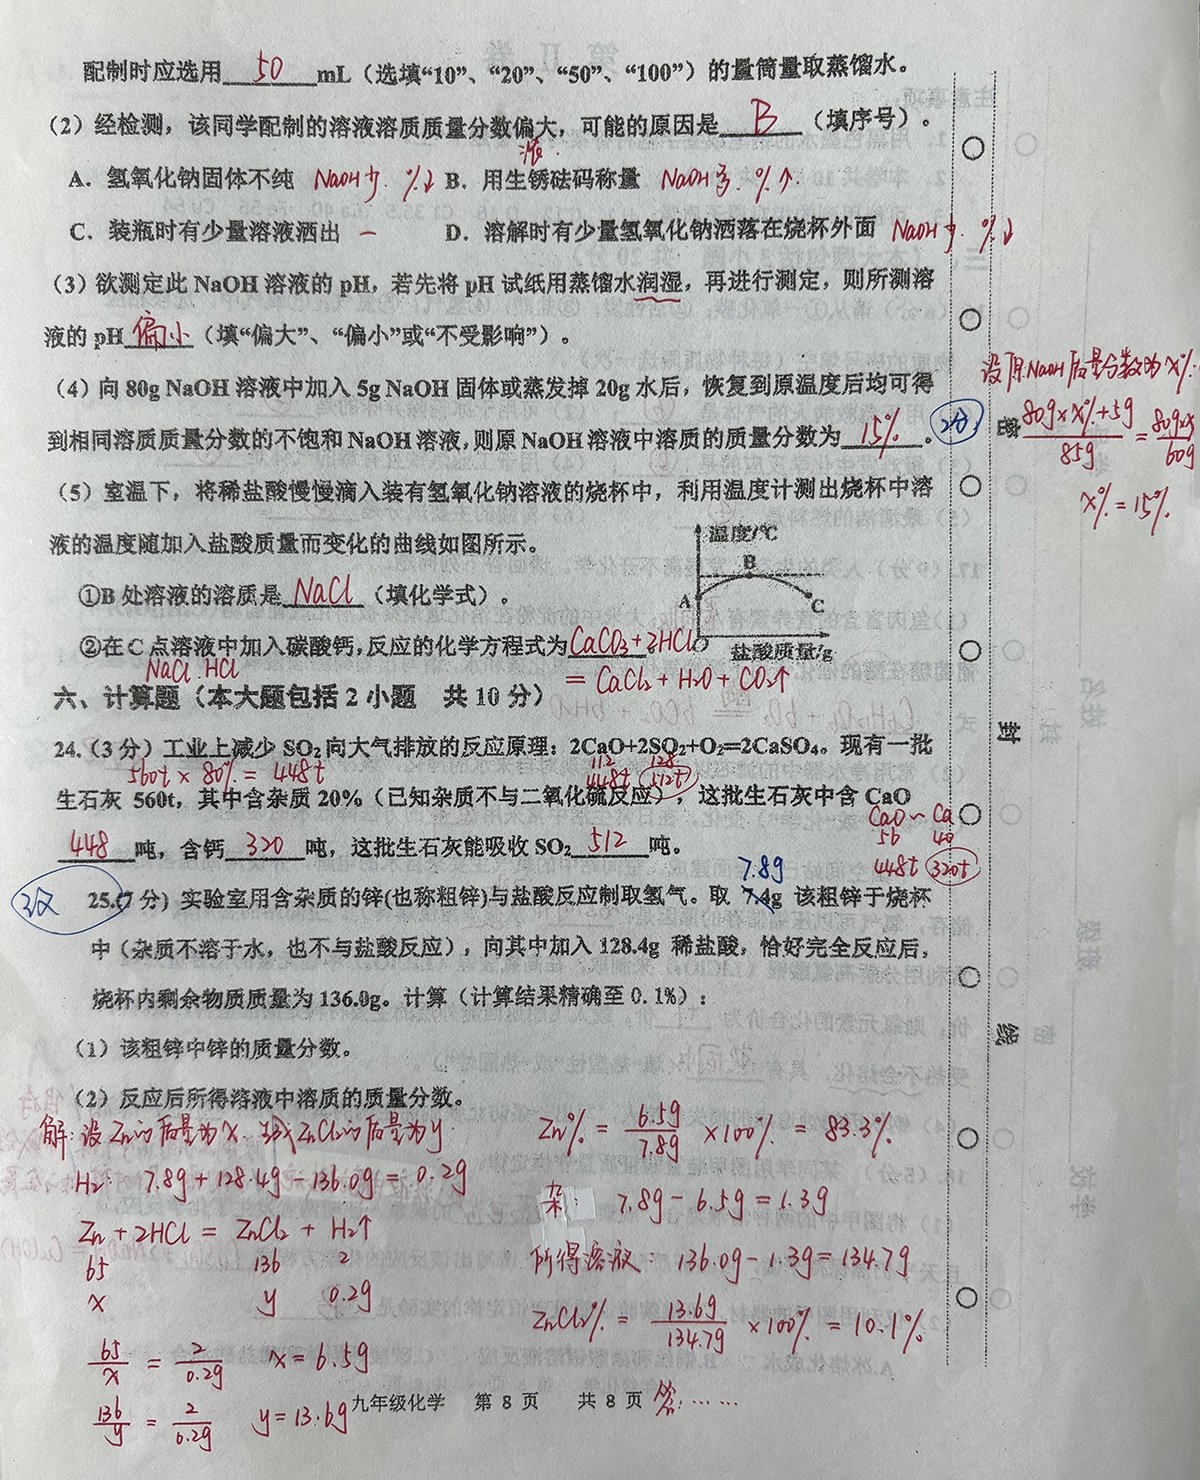 配制时应选用 50 mL（选填“10”、“20”、“50”、“100”）的量筒量取蒸馏水。
（2）经检测，该同学配制的溶液溶质质量分数偏大，可能的原因是 B （填序号）。
A．氢氧化钠固体不纯 NaOH少. %↓ B．用生锈砝码称量 NaOH多. %↑.
C．装瓶时有少量溶液洒出 — D．溶解时有少量氢氧化钠洒落在烧杯外面 NaOH少. %↓
（3）欲测定此 NaOH 溶液的 pH，若先将 pH 试纸用蒸馏水润湿，再进行测定，则所测溶
液的 pH 偏小 （填“偏大”、“偏小”或“不受影响”）。
设原NaOH质量分数为x%.
（4）向 80g NaOH 溶液中加入 5g NaOH 固体或蒸发掉 20g 水后，恢复到原温度后均可得
到相同溶质质量分数的不饱和 NaOH 溶液，则原 NaOH 溶液中溶质的质量分数为 15% 。
2分.
密
80g×x%+5g / 85g = 80g×x / 60g
x% = 15%
（5）室温下，将稀盐酸慢慢滴入装有氢氧化钠溶液的烧杯中，利用温度计测出烧杯中溶
液的温度随加入盐酸质量而变化的曲线如图所示。
温度/℃
B
A
C
盐酸质量/g
①B 处溶液的溶质是 NaCl （填化学式）。
②在 C 点溶液中加入碳酸钙，反应的化学方程式为 CaCO3+2HCl
NaCl HCl
= CaCl2 + H2O + CO2↑
六、计算题（本大题包括 2 小题 共 10 分）
封
24.（3 分）工业上减少 SO2 向大气排放的反应原理：2CaO+2SO2+O2═2CaSO4。现有一批
560t × 80% = 448t
112 128
448t 512t
生石灰 560t，其中含杂质 20%（已知杂质不与二氧化硫反应），这批生石灰中含 CaO
CaO ~ Ca
56 40
448t 320t
448 吨，含钙 320 吨，这批生石灰能吸收 SO2 512 吨。
7.8g
25.(7 分) 实验室用含杂质的锌(也称粗锌)与盐酸反应制取氢气。取 7.4g 该粗锌于烧杯
中（杂质不溶于水，也不与盐酸反应），向其中加入 128.4g 稀盐酸，恰好完全反应后，
烧杯内剩余物质质量为 136.0g。计算（计算结果精确至 0.1%）：
线
（1）该粗锌中锌的质量分数。
（2）反应后所得溶液中溶质的质量分数。
解：设Zn的质量为x. 生成ZnCl2的质量为y.
H2: 7.8g + 128.4g - 136.0g = 0.2g
Zn + 2HCl = ZnCl2 + H2↑
65 136 2
x y 0.2g
65/x = 2/0.2g x = 6.5g
136/y = 2/0.2g y = 13.6g
Zn% = 6.5g/7.8g × 100% = 83.3%
杂: 7.8g - 6.5g = 1.3g
所得溶液: 136.0g - 1.3g = 134.7g
ZnCl2% = 13.6g/134.7g × 100% = 10.1%
答: ……
九年级化学 第 8 页 共 8 页